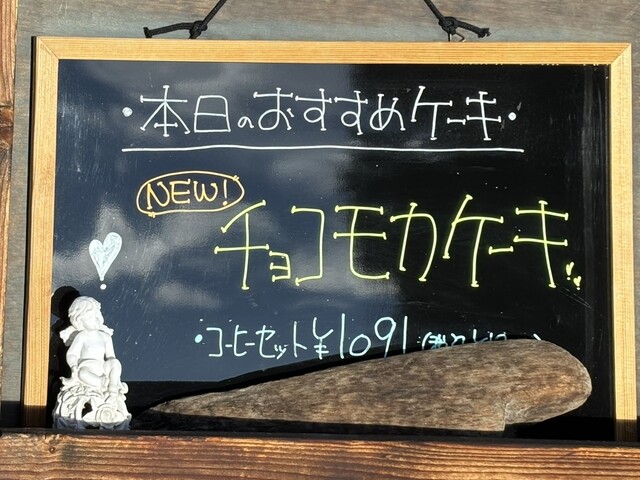 ・本日のおすすめケーキ・
NEW!
チョコモカケーキ!!
・コーヒーセット ¥1091